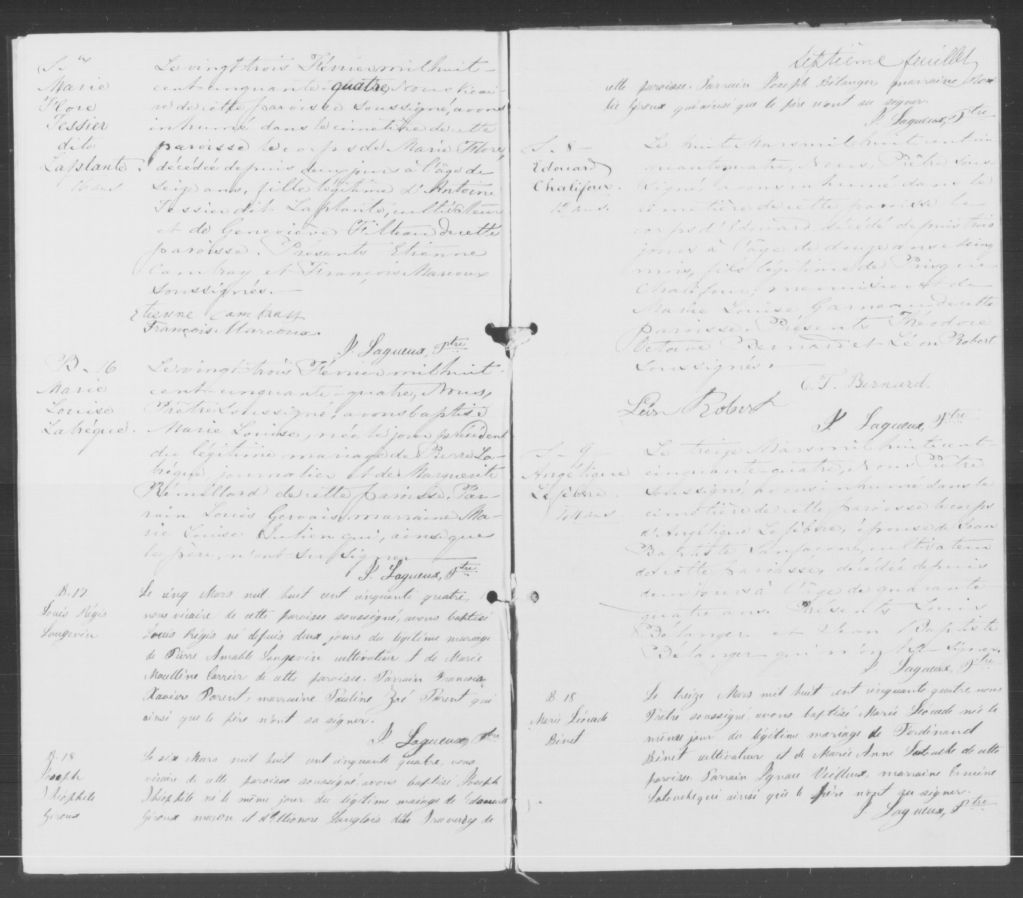 S.
Marie
Flore
Tessier
dite
Laplante.
16 ans
Le vingt trois Février mil huit
cent cinquante quatre, Nous vicai-
re de cette paroisse soussigné, avons
inhumé dans le cimetière de cette
paroisse le corps de Marie Flore,
décédée depuis deux jours à l'âge de
seize ans, fille légitime d'Antoine
Tessier dit Laplante, cultivateur
et de Geneviève Filteau de cette
paroisse. Présents Etienne
Cambray et François Marcoux
soussignés.
Etienne Cambray
François Marcoux
P. Lagueux, Ptre
B. 16
Marie
Louise
Labrèque.
Le vingt trois Février mil huit
cent cinquante quatre, Nous,
Prêtre soussigné, avons baptisé
Marie Louise, née le jour précédent
du légitime mariage de Pierre La-
brèque, journalier et de Marguerite
Rémillard de cette paroisse. Par-
rain Louis Gervais, marraine Ma-
rie Louise Lutien qui, ainsi que
le père, n'ont su signer
P. Lagueux, Ptre
B. 17
Louis Régis
Langevin
Le cinq Mars mil huit cent cinquante quatre,
nous vicaire de cette paroisse soussigné, avons baptisé
Louis Régis né depuis deux jours du légitime mariage
de Pierre Amable Langevin cultivateur & de Marie
Modline Carrier de cette paroisse. Parrain François
Xavier Parent, marraine Pauline Zoé Parent qui
ainsi que le père n'ont su signer.
P. Lagueux, Ptre
B. 18
Joseph
Théophile
Giroux
Le six Mars mil huit cent cinquante quatre, nous
vicaire de cette paroisse soussigné avons baptisé Joseph
Théophile né le même jour du légitime mariage de Edouard
Giroux maçon et d'Eléonore Langlois dite Traversy de
septième feuillet
cette paroisse. Parrain Joseph Bélanger marraine
Giroux qui ainsi que le père n'ont su signer.
P. Lagueux, Ptre
S. 8
Edouard
Chalifour.
12 ans.
Le huit Mars mil huit cent cin-
quante quatre, Nous, Prêtre sous-
signé, avons inhumé dans le
cimetière de cette paroisse le
corps d'Edouard décédé depuis trois
jours à l'âge de douze ans et cinq
mois, fils légitime de Prisque
Chalifour, menuisier et de
Marie Louise Garneau de cette
paroisse. Présents Théodore
Octave Bernard et Léon Robert
soussignés.
O.T. Bernard
Léon Robert
P. Lagueux, Ptre
S. 9
Angélique
Lefebvre.
44 ans
Le treize Mars mil huit cent
cinquante-quatre, Nous Prêtre
soussigné, avons inhumé dans le
cimetière de cette paroisse le corps
d'Angélique Lefebvre, épouse de Jean
Baptiste Sanfaçon, cultivateur
de cette paroisse, décédée depuis
deux jours à l'âge de quarante
quatre ans. Présents Louis
Bélanger et Jean Baptiste
Bélanger qui n'ont su signer
P. Lagueux, Ptre
B. 18
Marie Léocade
Binet
Le treize Mars mil huit cent cinquante quatre nous
Prêtre soussigné avons baptisé Marie Léocade née le
même jour du légitime mariage de Ferdinand
Binet cultivateur et de Marie Anne de cette
paroisse Parrain Ignace Veilleux, marraine
qui ainsi que le père n'ont su signer.
P. Lagueux, Ptre